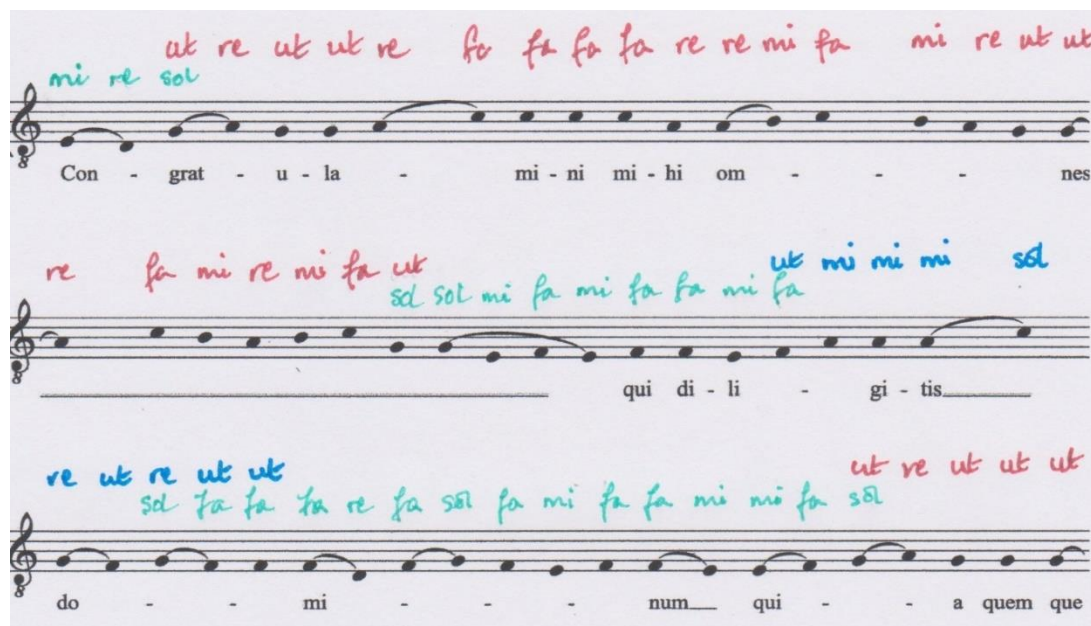 ut re ut ut re fa fa fa fa re re mi fa mi re ut ut
mi re sol
8
Con - grat - u - la - mi - ni mi - hi om - - - nes
re fa mi re mi fa ut ut mi mi mi sol
sol sol mi fa mi fa fa mi fa
8
qui di - li - gi - tis
re ut re ut ut ut re ut ut ut
sol fa fa fa re fa sol fa mi fa fa mi mi fa sol
8
do - - mi - - - num qui - - a quem que